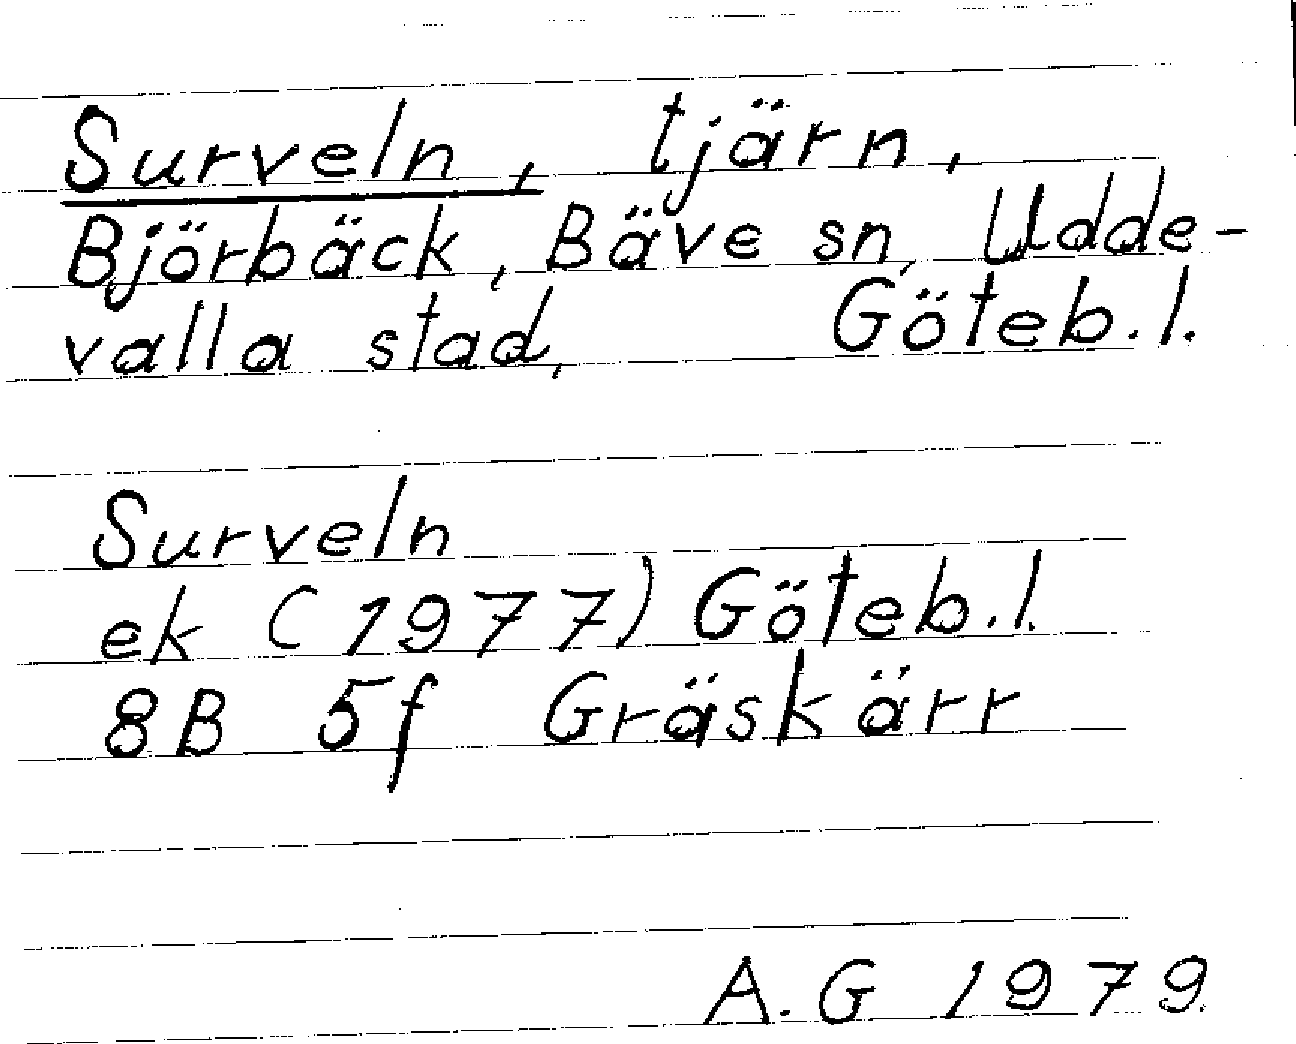 Surveln, tjärn,
Björbäck, Bäve sn, Udde-
valla stad, Göteb. l.
Surveln
ek (1977) Göteb. l.
8B 5f Gräskärr
A. G 1979.